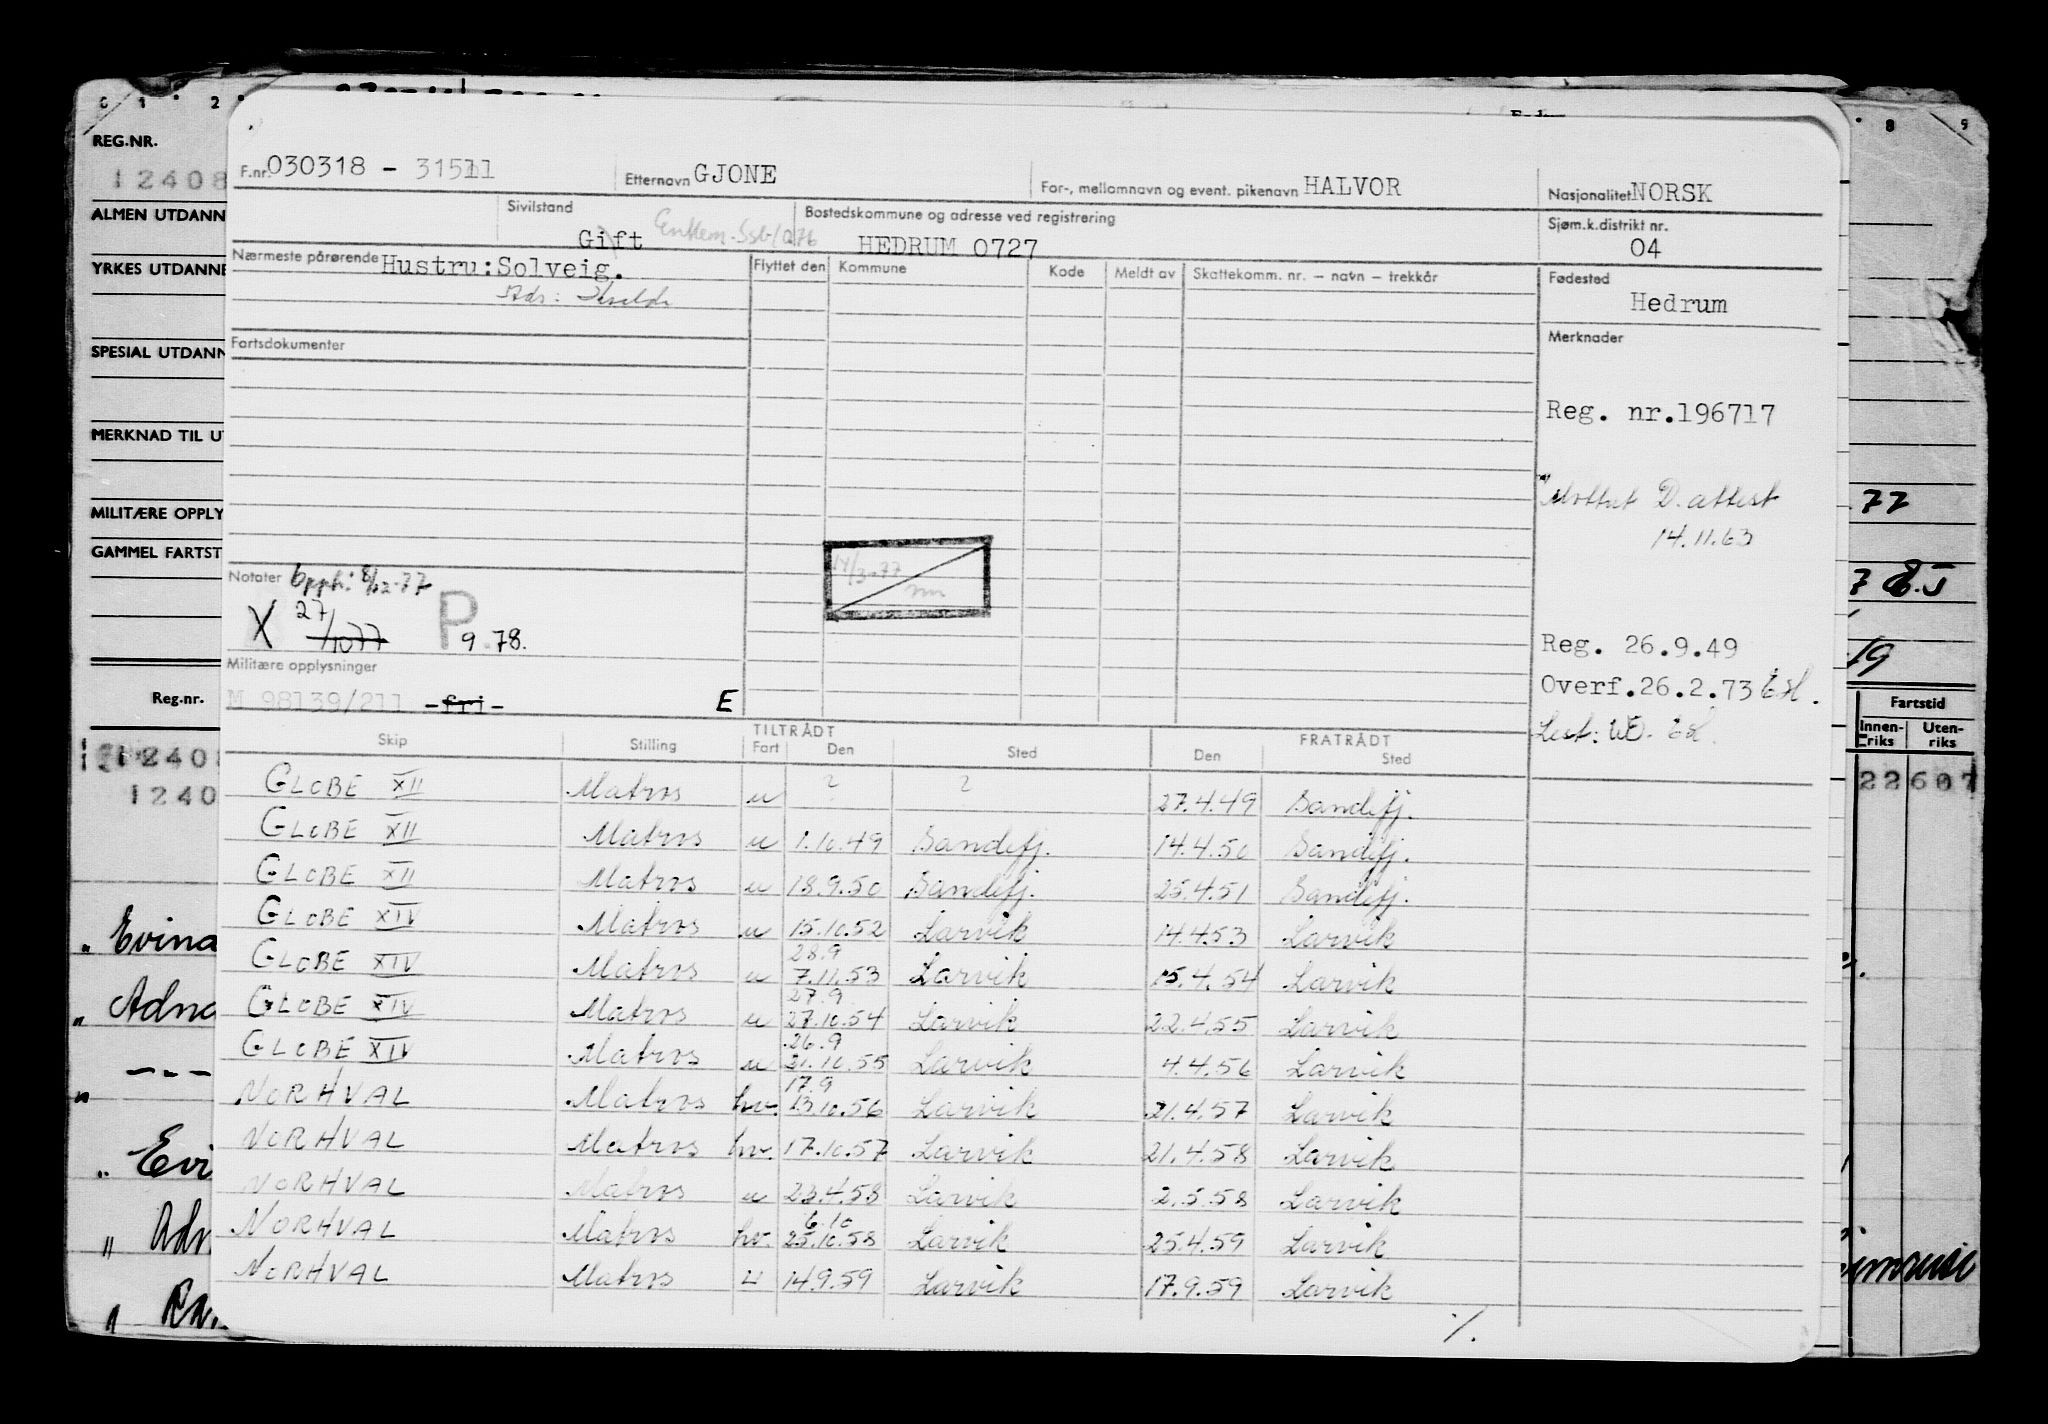 REG.NR.
12408
ALMEN UTDANN
YRKES UTDANNE
SPESIAL UTDANN
MERKNAD TIL U
MILITÆRE OPPLY
GAMMEL FARTST
Reg.nr.
12408
1240
" Evina
" Adna
" ---
" Evi
" Adn
F.nr. 030318 - 31511 Etternavn GJONE For-, mellomnavn og event. pikenavn HALVOR Nasjonalitet NORSK
Sivilstand Gift Enkem. Bostedskommune og adresse ved registrering HEDRUM 0727 Sjøm.k.distrikt nr. 04
Nærmeste pårørende Hustru: Solveig. Flyttet den Kommune Kode Meldt av Skattekomm. nr. – navn – trekkår Fødested
Adr: Hedrum
Fartsdokumenter Merknader
Reg. nr.196717
Mottat D. attest
14.11.63
14/3-77
Notater Opph: 8/12-77
X 27/1077 P 9.78.
Reg. 26.9.49
Militære opplysninger
M 98139/211 -fri- E
Overf.26.2.73
Skip Stilling TILTRÅDT FRATRÅDT
Fart Den Sted Den Sted
GLOBE XII Matros u ? ? 27.4.49 Sandefj.
GLOBE XII Matros u 1.10.49 Sandefj. 14.4.50 Sandefj.
GLOBE XII Matros u 18.9.50 Sandefj. 25.4.51 Sandefj.
GLOBE XIV Matros u 15.10.52 Larvik 14.4.53 Larvik
28.9
GLOBE XIV Matros u 7.11.53 Larvik 15.4.54 Larvik
27.9
GLOBE XIV Matros u 27.10.54 Larvik 22.4.55 Larvik
26.9
GLOBE XIV Matros u 21.10.55 Larvik 4.4.56 Larvik
17.9
NORHVAL Matros hv. 13.10.56 Larvik 21.4.57 Larvik
NORHVAL Matros hv. 17.10.57 Larvik 21.4.58 Larvik
NORHVAL Matros u 23.4.58 Larvik 2.5.58 Larvik
6.10
NORHVAL Matros hv. 25.10.58 Larvik 25.4.59 Larvik
NORHVAL Matros u 14.9.59 Larvik 17.9.59 Larvik
%
Fartstid
Innen-riks Uten-riks
22607